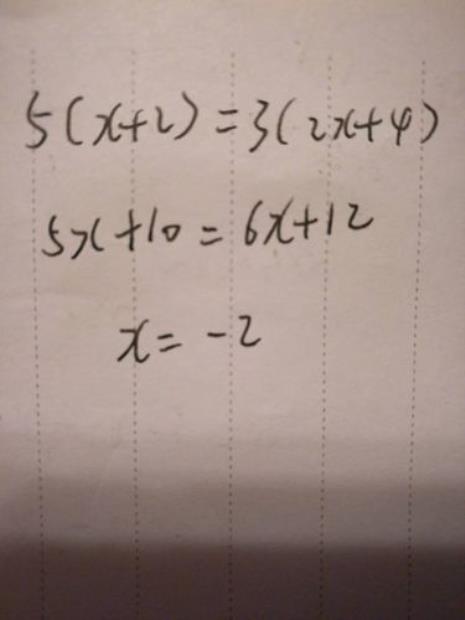 5(x+2)=3(2x+4)
5x+10=6x+12
x=-2